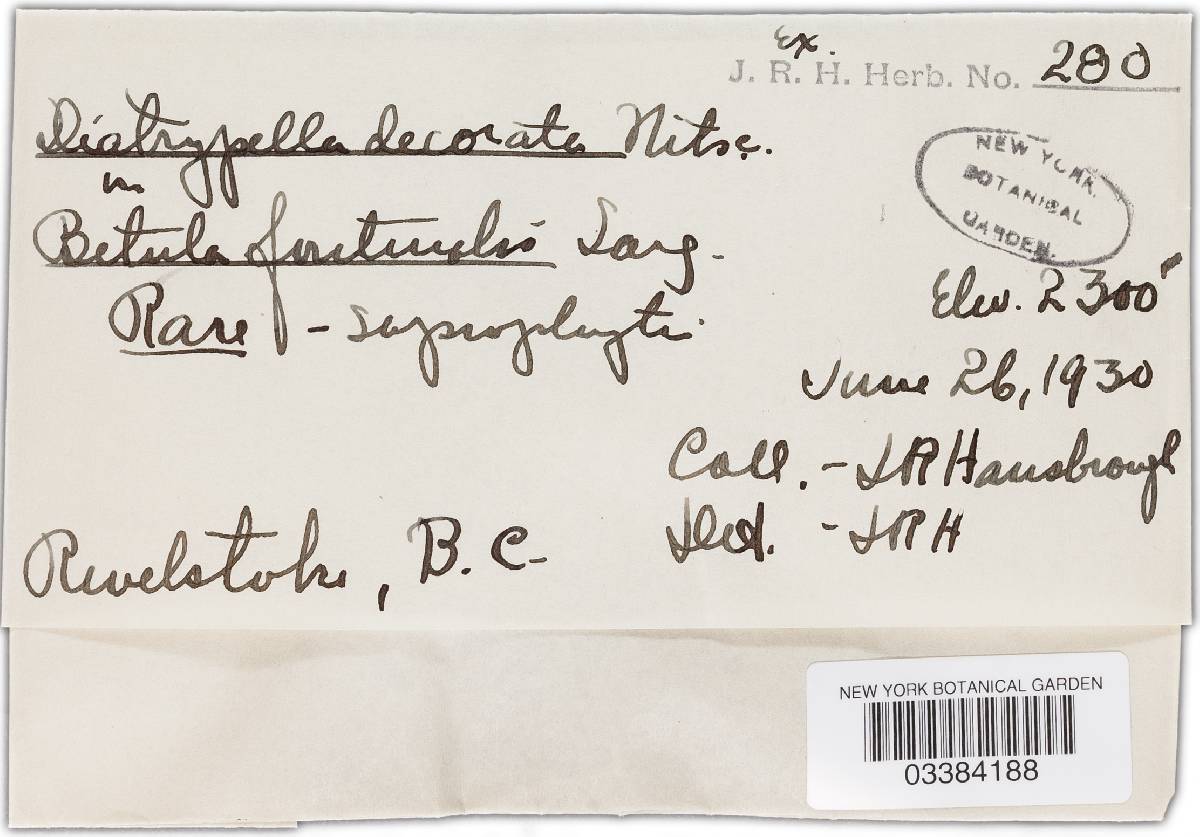 Ex.
J. R. H. Herb. No. 280
Diatrypella decorata Nitsc.
on
Betula fontinalis Sarg.
Rare - saprophytic
NEW YORK
BOTANICAL
GARDEN.
Elev. 2300'
June 26, 1930
Coll. - JRHansbrough
Det. - JRH
Revelstoke, B.C.
NEW YORK BOTANICAL GARDEN
03384188